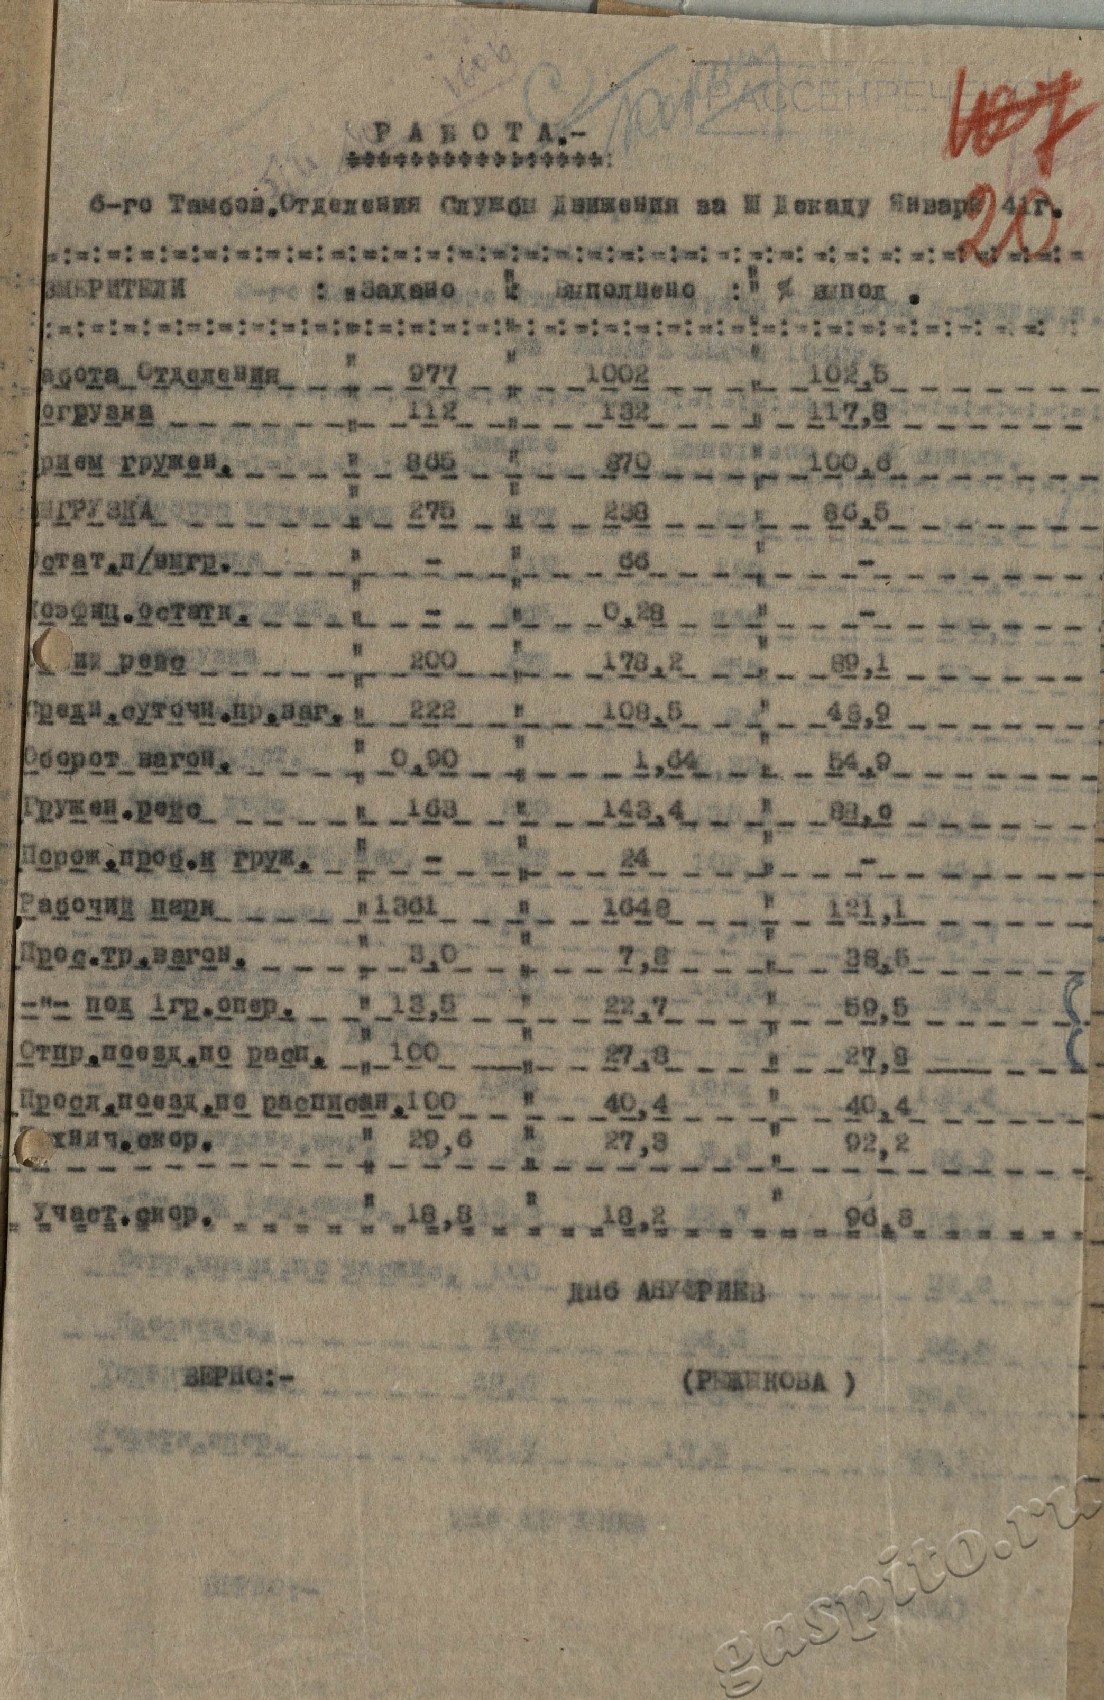 РАССЕКРЕЧЕНО
107
20
Р А Б О Т А.-
6-го Тамбов.Отделения Службы Движения за III Декаду Января 41г.
ЗМЕРИТЕЛИ : Задано : Выполнено : % выпол .
абота Отделения " 977 " 1002 " 102,5
огрузка " 112 " 132 " 117,8
рием гружен. " 865 " 870 " 100,6
ЫГРУЗКА " 275 " 238 " 86,5
стат.п/выгр. " - " 66 " -
коэфиц.остатк. " - " 0,28 " -
ий рейс " 200 " 178,2 " 89,1
Средн.суточн.пр.ваг. " 222 " 108,5 " 48,9
Оборот вагон. " 0,90 " 1,64 " 54,9
Гружен.рейс " 163 " 143,4 " 88,0
Порож.проб.к груж. " - " 24 " -
Рабочий парк " 1361 " 1648 " 121,1
Прос.тр.вагон. " 3,0 " 7,8 " 38,5
-"- под 1гр.опер. " 13,5 " 22,7 " 59,5
Отпр.поезд.по расп. " 100 " 27,8 " 27,8
Просл.поезд.по расписан. 100 " 40,4 " 40,4
ехнич.скор. " 29,6 " 27,3 " 92,2
Участ.скор. " 18,8 " 18,2 " 96,8
ДН6 АНУФРИЕВ
ВЕРНО:- (РЫЖИКОВА )
gaspito.ru